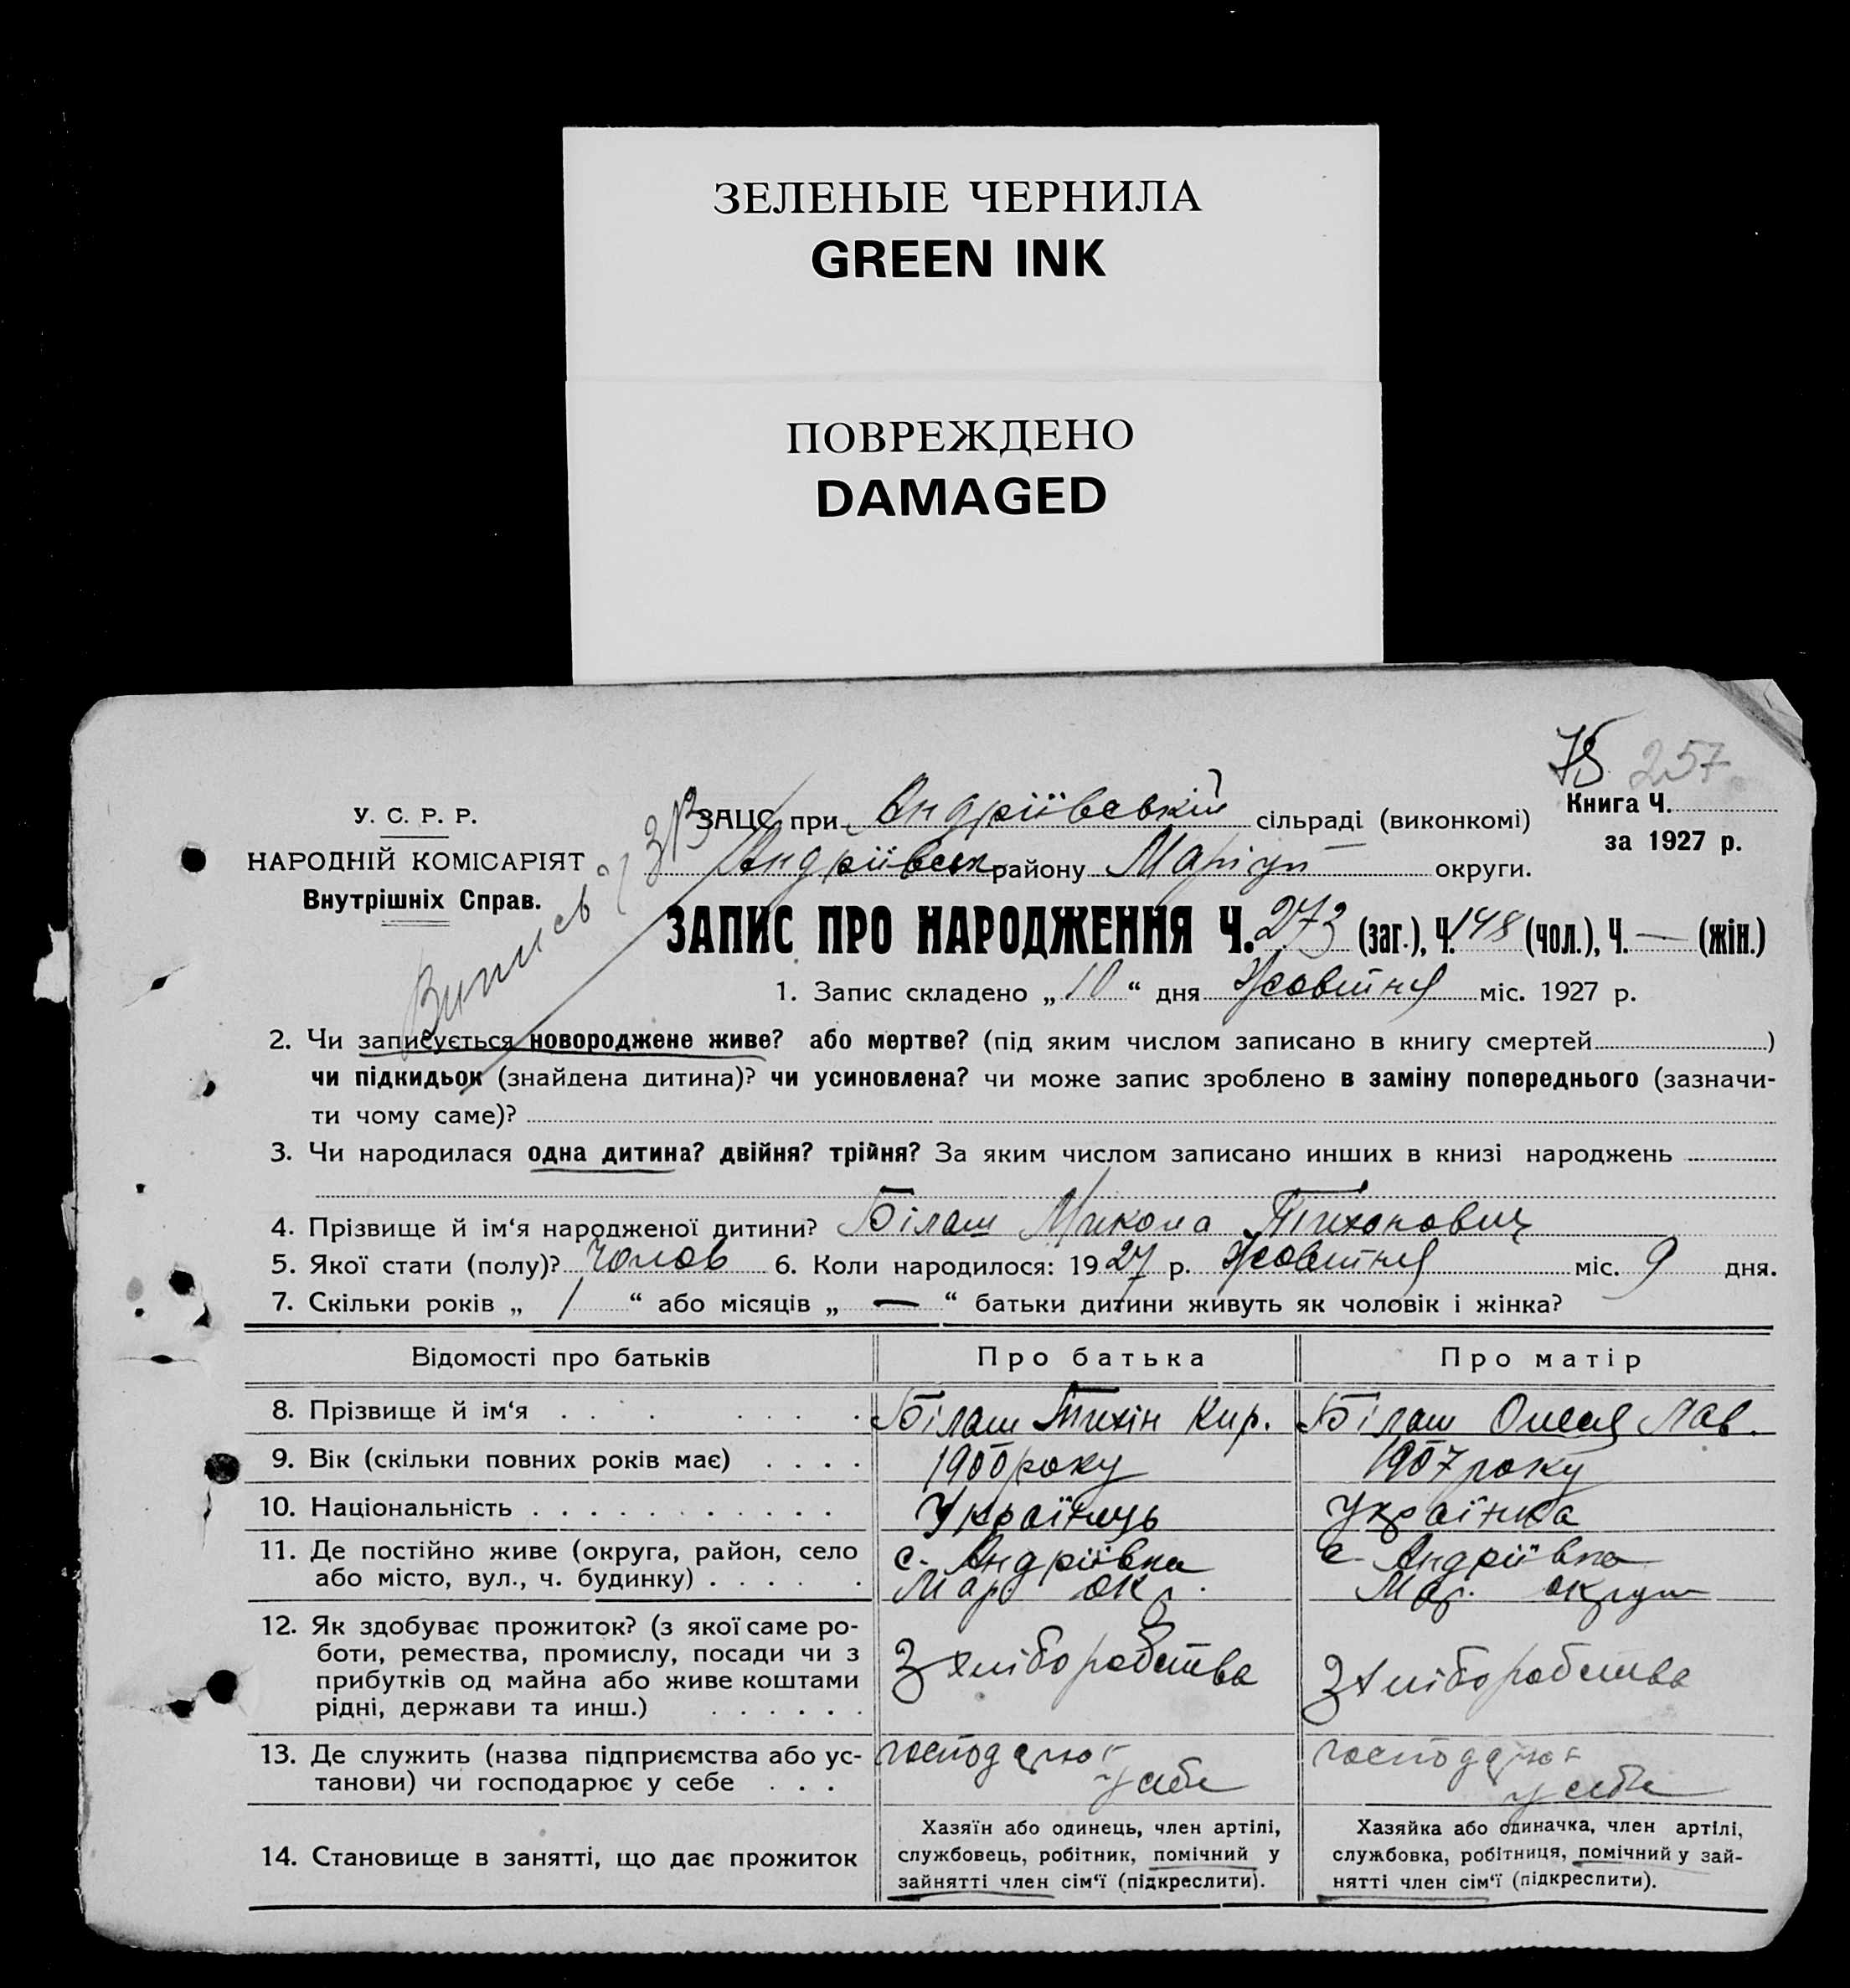 ЗЕЛЕНЫЕ ЧЕРНИЛА
GREEN INK
ПОВРЕЖДЕНО
DAMAGED
75 257
Книга Ч.
за 1927 р.
У. С. Р. Р.
НАРОДНІЙ КОМІСАРІЯТ
Внутрішніх Справ.
ЗАЦС при Андріївській сільраді (виконкомі)
Андріївськ району Маріуп округи.
Випись
ЗАПИС ПРО НАРОДЖЕННЯ Ч. 273 (заг.), Ч. 148 (чол.), Ч. — (жін.)
1. Запис складено „ 10 “ дня Жовтня міс. 1927 р.
2. Чи записується новороджене живе? або мертве? (під яким числом записано в книгу смертей)
чи підкидьок (знайдена дитина)? чи усиновлена? чи може запис зроблено в заміну попереднього (зазначи-
ти чому саме)?
3. Чи народилася одна дитина? двійня? трійня? За яким числом записано инших в книзі народжень
4. Прізвище й ім‘я народженої дитини? Білаш Микола Тихонович
5. Якої стати (полу)? чолов 6. Коли народилося: 1927 р. Жовтня міс. 9 дня.
7. Скільки років „ 1 “ або місяців „ — “ батьки дитини живуть як чоловік і жінка?
Відомості про батьків Про батька Про матір
8. Прізвище й ім‘я Білаш Тихін Кир. Білаш Олеся Лав.
9. Вік (скільки повних років має) 1900 року 1907 року
10. Національність Українець Українка
11. Де постійно живе (округа, район, село с. Андріївка с. Андріївка
або місто, вул., ч. будинку) Мар. ок. Мар. округи
12. Як здобуває прожиток? (з якої саме ро-
боти, ремества, промислу, посади чи з
прибутків од майна або живе коштами
рідні, держави та инш.)
З хліборобства З хліборобства
13. Де служить (назва підприємства або ус-
танови) чи господарює у себе
господарює господарює
у себе у себе
14. Становище в занятті, що дає прожиток
Хазяїн або одинець, член артілі,
службовець, робітник, помічний у
зайнятті член сім‘ї (підкреслити).
Хазяйка або одиначка, член артілі,
службовка, робітниця, помічний у зай-
нятті член сім‘ї (підкреслити).